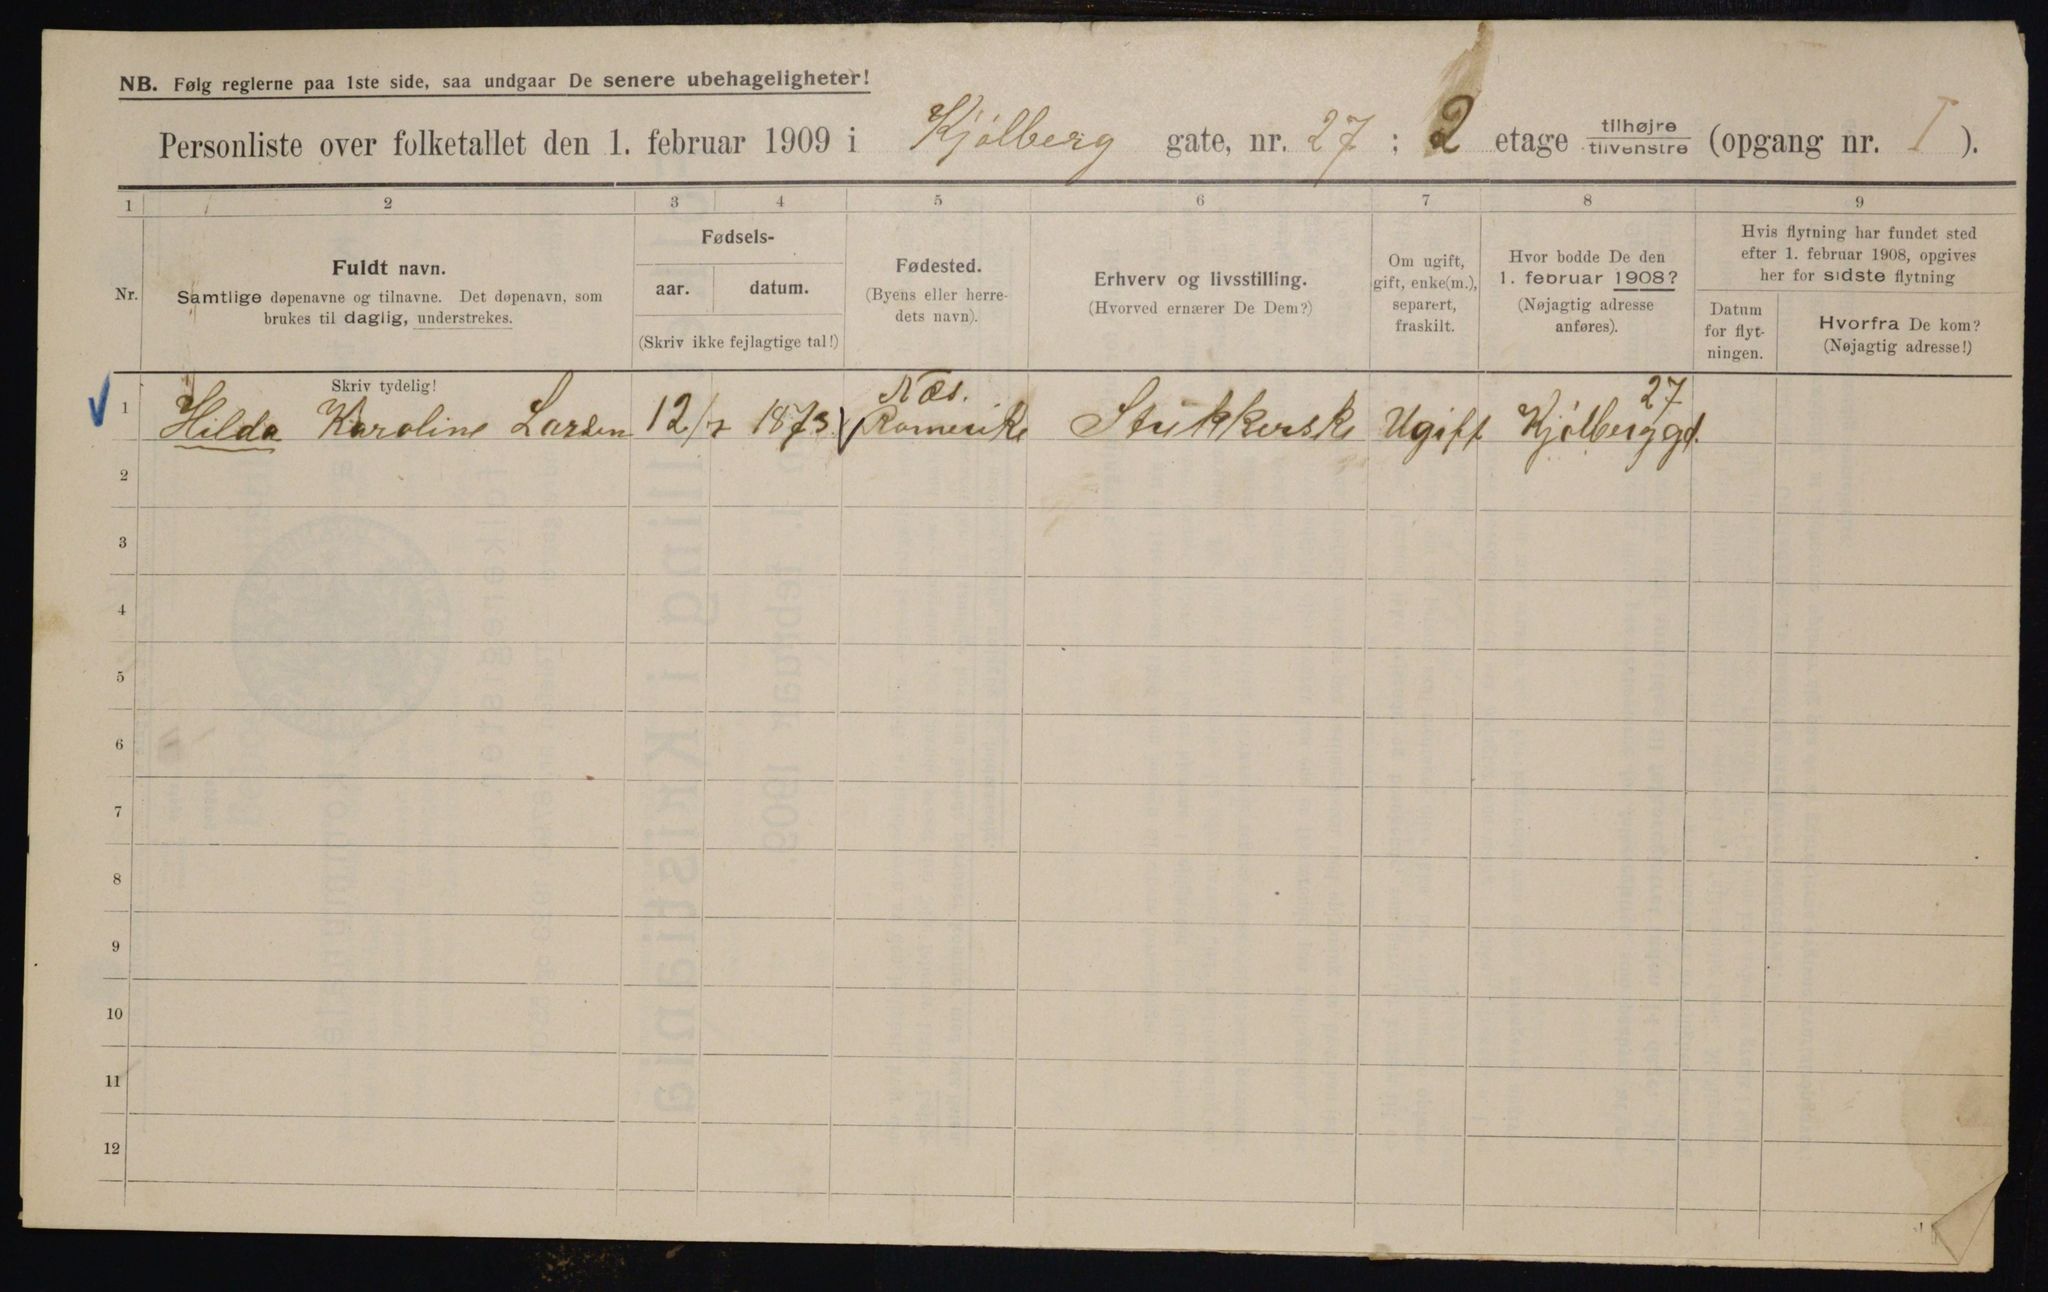 NB. Følg reglerne paa 1ste side, saa undgaar De senere ubehageligheter!
Personliste over folketallet den 1. februar 1909 i Kjølberg gate, nr. 27; 2 etage tilhøjre / tilvenstre (opgang nr. I).
1 2 3 4 5 6 7 8 9
Nr.
Fuldt navn.
Samtlige døpenavne og tilnavne. Det døpenavn, som
brukes til daglig, understrekes.
Fødsels-
aar. datum.
(Skriv ikke fejlagtige tal!)
Fødested.
(Byens eller herre-
dets navn).
Erhverv og livsstilling.
(Hvorved ernærer De Dem?)
Om ugift,
gift, enke(m.),
separert,
fraskilt.
Hvor bodde De den
1. februar 1908?
(Nøjagtig adresse
anføres).
Hvis flytning har fundet sted
efter 1. februar 1908, opgives
her for sidste flytning
Datum
for flyt-
ningen.
Hvorfra De kom?
(Nøjagtig adresse!)
Skriv tydelig!
Næs. 27
1 Hilda Karoline Larsen 12/7 1873 Romerike Strikkerske Ugift Kjølberggd.
2
3
4
5
6
7
8
9
10
11
12